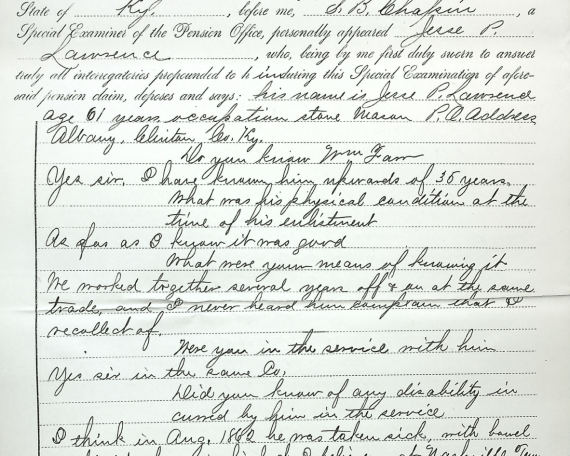 State of Ky. , before me, S. B. Chapin , a
Special Examiner of the Pension Office, personally appeared Jesse P.
Lawrence , who, being by me first duly sworn to answer
truly all interrogatories propounded to h im during this Special Examination of afore-
said pension claim, deposes and says: his name is Jesse P. Lawrence
age 61 years, occupation stone mason P.O. Address
Albany, Clinton Co. Ky.
Do you know Wm Farr
Yes sir. I have known him upwards of 35 years.
What was his physical condition at the
time of his enlistment
As far as I know it was good
What were your means of knowing it
We worked together several years off & on at the same
trade, and I never heard him complain that I
recollect of.
Were you in the service with him
Yes sir in the same Co.
Did you know of any disability in
curred by him in the service
I think in Aug. 1862 he was taken sick, with bowel